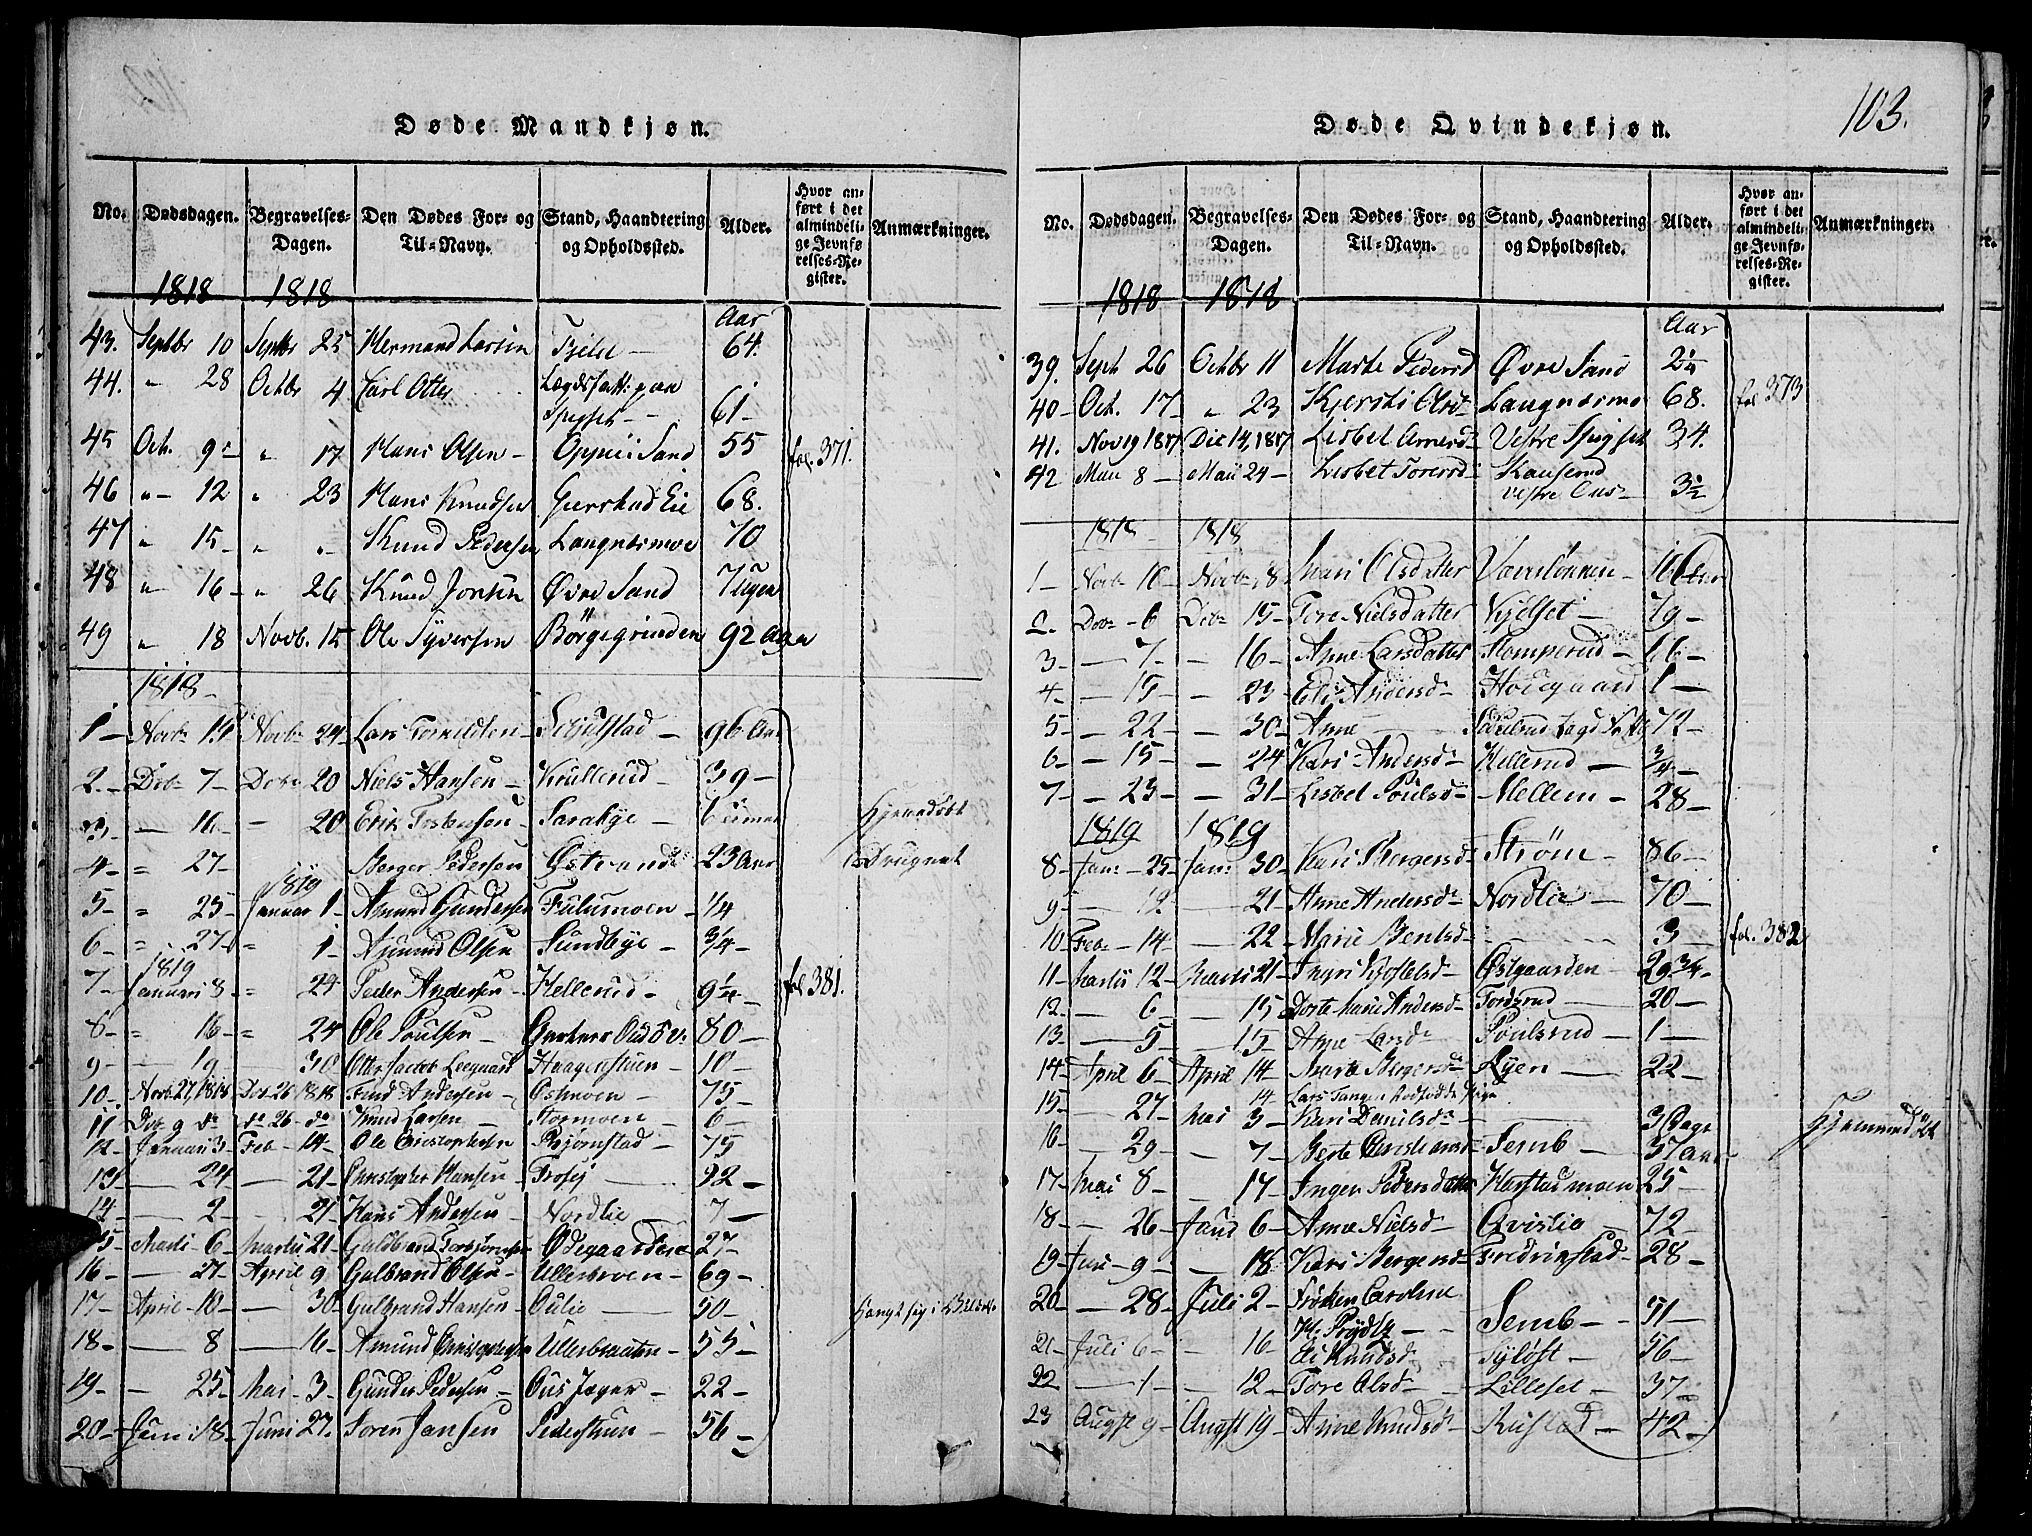 103.
Døde Mandkjøn.
No. Dødsdagen. Begravelses-Dagen. Den Dødes For- og Til-Navn. Stand, Haandtering og Opholdssted. Alder. Hvor anført i det almindelige Jevnførelses-Register. Anmærkninger.
1818 1818
Aar
43. Septbr 10 Septbr 25 Hermand Larsen Fjeld — 64.
44. " 28 Octbr 4 Carl Otter Lægdsfatt: paa
Spegset — 61 —
45 Oct. 9 " 17 Hans Olsen — Oppeii Sand 55 fol. 371.
46 " 12 " 23 Hans Knudsen Gierstad Eie 68.
47 " 15 — " " — Knud Pedersen Langnæsmoe 70
48 " 16 — " 26 Knud Jonsen Øvre Sand 7 Uger
49 " 18 Novb. 15 Ole Syversen Börgegrinden 92 Aar
1818 —
1 — Novb 14 Novb 24 Lars 96 Aar
2. — Deb 7 — Deb 20 Niels Hansen — Krullerud — 39 —
3 — — 16 — — 20 Erik Torstensen — Sarabye — 6 Timer Hjemedøbt
4 — " 27 — Berger Pedersen Østvand 23 Aar Druknet
1819
5 — " 25 — Januar 1 — Amund Gundersen Fulumoen — 1/4
6 — " 27 — " 1 — Amund Olsen Sundbye — 3/4 —
1819
7 — Januari 8 — " 24 Peder Andersen — Hellerud — 9 1/4 — fol. 381.
8 — " 16 — " 24 Ole Poulsen 80 —
9 — — 19 30 Otter Jacob Haagenstuen — 10 —
10 — Novb 27, 1818 Deb. 26 1818 Find Andersen — Oshaoen — 75 —
11 Deb. 9 do do 26 — do Knud Larsen — Kormoen — 6 —
12 — Januari 3 — Feb — 14 — Ole Christophersen Bjørnstad — 75
13 — — 24 — 21 — Christopher Hansen — Trosej — 22 —
14 — — 2 — 21 — Hans Andersen — Nordlie — 7 —
15 — Marti 6 — Martii 21 — Guldbrand Torbjørnsen Ødegaarden — 27 —
16 — — 21 — April 9 Gulbrand Olsen — Ullerbroen — 69 —
17 — April 10 — — 30 — Gulbrand Hansen — Oulie — 50 — Hængt sig i
18 — — 8 — 16 — Amund Christophersen Ullerbraaten — 55 —
19 — — 25 — Mai — 3 — Gunder Pedersen — Ous Jæger — 22 —
20 — Juni 18 — Juni 27 — Soren Jansen Pederstuen — 56 —
Døde Qvindekjøn.
No. Dødsdagen. Begravelses-Dagen. Den Dødes For- og Til-Navn. Stand, Haandtering og Opholdssted. Alder. Hvor anført i det almindelige Jevnførelses-Register. Anmærkninger.
1818 1818
Aar
39. Sept 26 Octbr 11 Marte Pedersd Øvre Sand 2 1/4
40 — Oct. 17 — " 23 Kjersti Olsd — Langnæsmo 68. fol. 373
41. Nov 19 1817 Dec 14, 1817 Lisbet Arnesd — Vestre Spigset 34.
42 Maii 8 — Maii 24 — Lisbet Toresd — Kauserud
vestre Ous — 3 1/2
1818 — 1818
1 — Novb 10 — Novb 8 Mari Olsdatter 16 Aar
2. Deb — 6 Deb 15 — Tore Nielsdatter Kjølset — 79 —
3 — — 7 — — 16 — Anne Larsdatter Stomperud — 16 —
4 — — 15 — — 23 — Eli Andersd — Hovegaard 1 —
5 — — 22 — — 30 — Anne — 72 —
6 — — 15 — — 24 Kari Andersd — Hellerud — 3/4 —
7 — — 23 — — 31 — Lisbet Poulsd — Mellem — 28 —
1819 1819
8 — Jan: — 25 — Jan: 30 — Kari Bergersd — Strøm — 86 —
9 — — 12 — 21 — Anne Andersd — Nordlie — 70 —
10 — Feb — 14 — — 22 — Marie Bentsd — — 3 — fol. 382
11 — Martii 12 — Marti 21 — Ingri Østgaarden — 29 3/4 —
12 — — 6 — — 15 Dorte Marie Andersd — Fordsrud — 20 —
13 — — 5 — 15 — Anne Larsd — Poulsrud — 1 —
14 — April 6 — April 14 — Marte Bergersd — Lyen — 22 —
14 — Lars Tangen dødfødde Pige
15 — — 27 — Mai 3 — Kari Danielsd — — 3 Dage Hjemmedøbt
16 — — 29 — 7 — Berte Christiansd — Semb — 37 Aar
17 — Mai 8 — — 17 — Inger Pedersdatter Harstad moen 25 —
18 — — 26 — Juni 6 — Anne Nielsd — Qvislie — 72 —
19 — Juni — 9 — — 18 Kari Bergersd — Fredrikstad — 28 —
20 — — 28 — Juli 2 — Frøken Caroline
H: Prydtz — Semb — 51 —
21 — Juli 6 — — 16 — Eli Knudsd — Tyløft — 56 —
22 — 1 — — 12 — Tore Olsd — Lilleset — 37 —
23 Augst 9 — Augst 19 — Anne Knudsd Kristad — 42 —